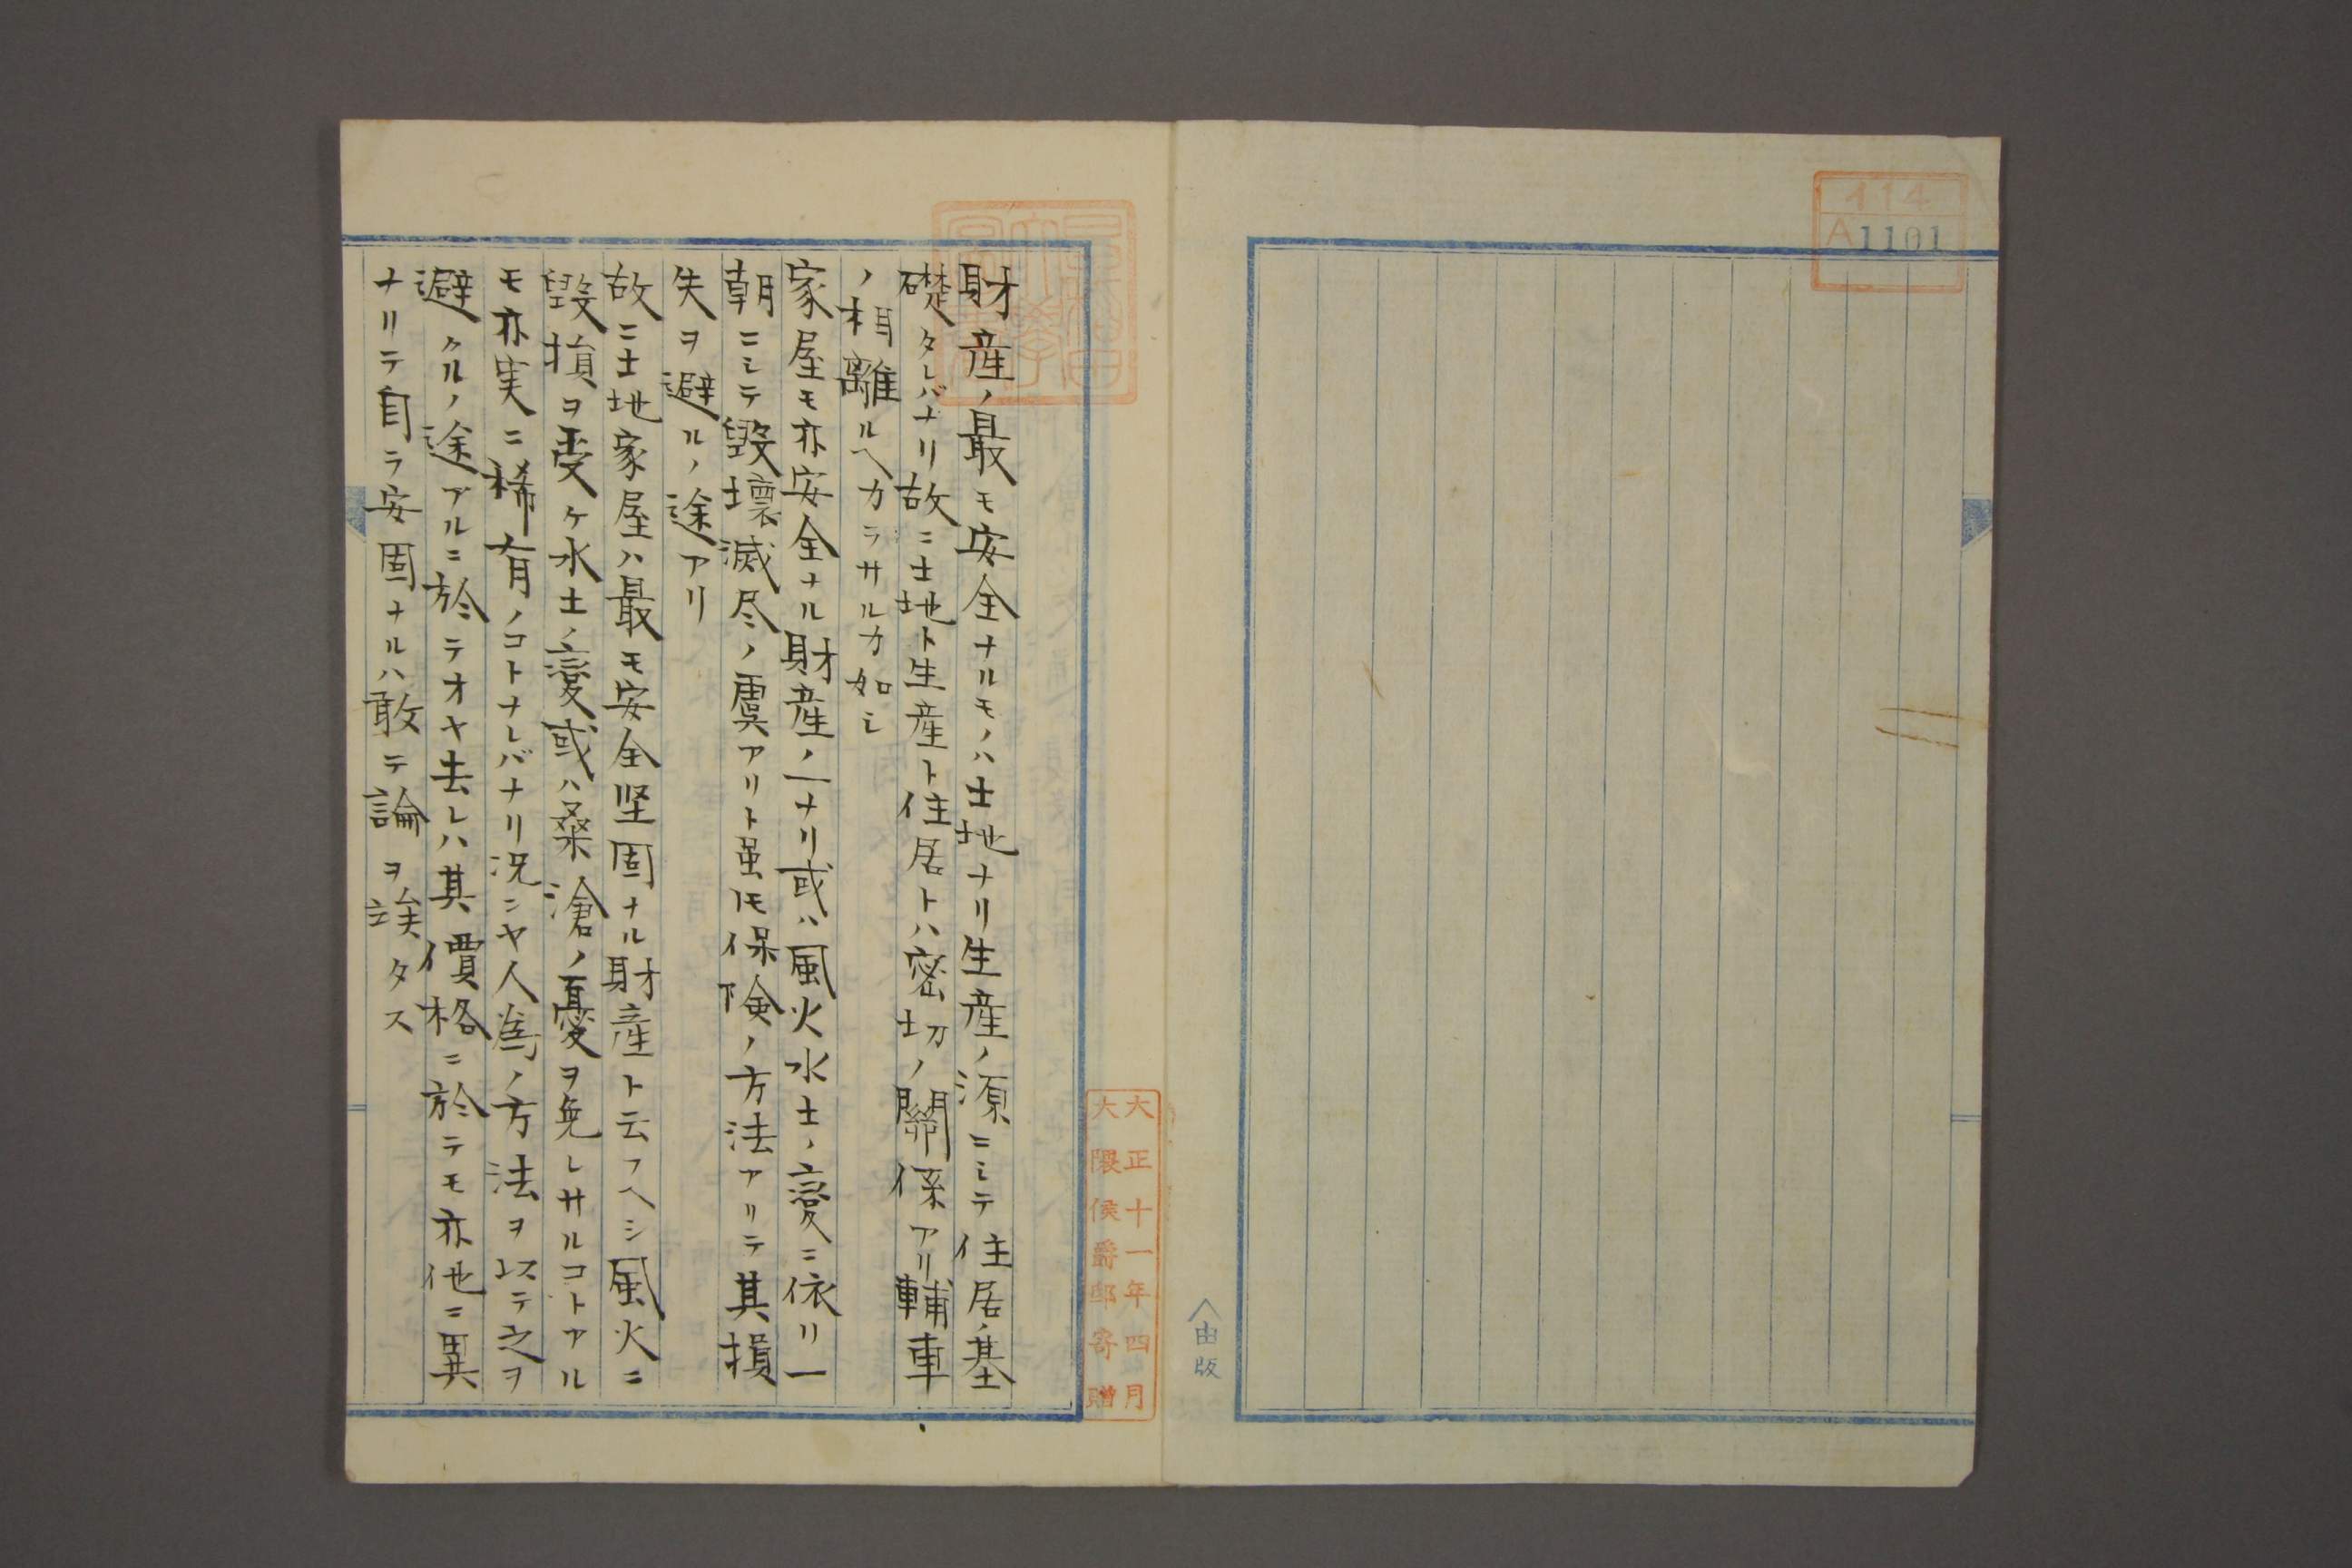 イ14
A1101
財産ノ最モ安全ナルモノハ土地ナリ生産ノ源ニシテ住居ノ基
礎タレバナリ故ニ土地ト生産ト住居トハ密切ノ關係アリ輔車
ノ相離ルヘカラサルカ如シ
家屋モ亦安全ナル財産ノ一ナリ或ハ風火水土ノ変ニ依リ一
朝ニシテ毀壞滅尽ノ虞アリト虽モ保険ノ方法アリテ其損
失ヲ避ルノ途アリ
故ニ土地家屋ハ最モ安全堅固ナル財産ト云フヘシ風火ニ
毀損ヲ受ケ水土ノ変或ハ桑滄ノ憂ヲ免レサルコトアル
モ亦実ニ稀有ノコトナレバナリ況ニヤ人為ノ方法ヲ以テ之ヲ
避クルノ途アルニ於テオヤ去レハ其價格ニ於テモ亦他ニ異
ナリテ自ラ安固ナルハ敢テ論ヲ竢タス
大正十一年四月
大隈侯爵邸寄贈